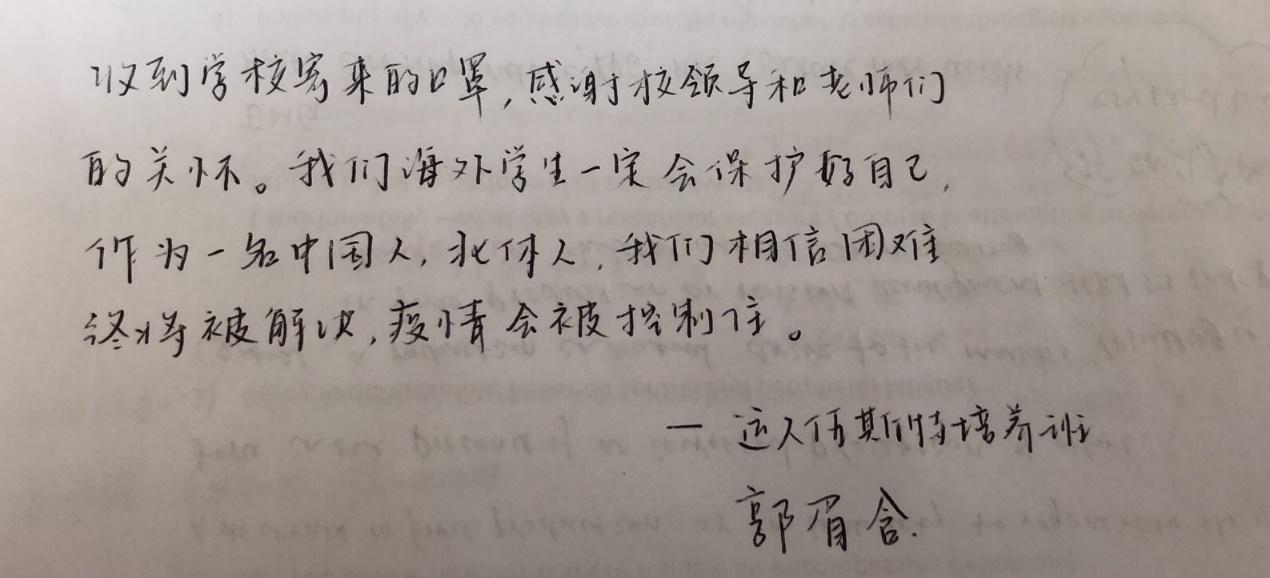 收到学校寄来的口罩,感谢校领导和老师们
的关怀。我们海外学生一定会保护好自己,
作为一名中国人,北体人,我们相信困难
终将被解决,疫情会被控制住。
— 运人伍斯特培养班
郭眉含.